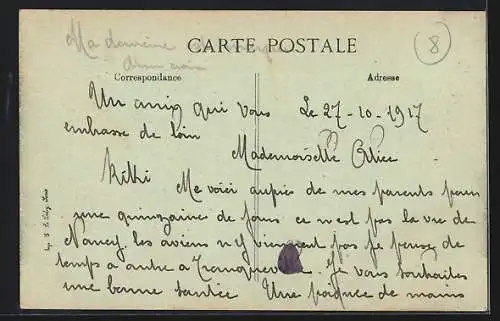 CARTE POSTALE
8
Correspondance
Adresse
Un amis qui vous
embrasse de loin
Kikki
Le 27-10-1917
Mademoiselle Alice
Me voici aupres de mes parents pour
une quinzaine de jours ce n'est pas la vie de
Nancy. les aviens n'y viennent pas je pense de
temps a autre a Je vous souhaites
une bonne santée Une poignee de mains